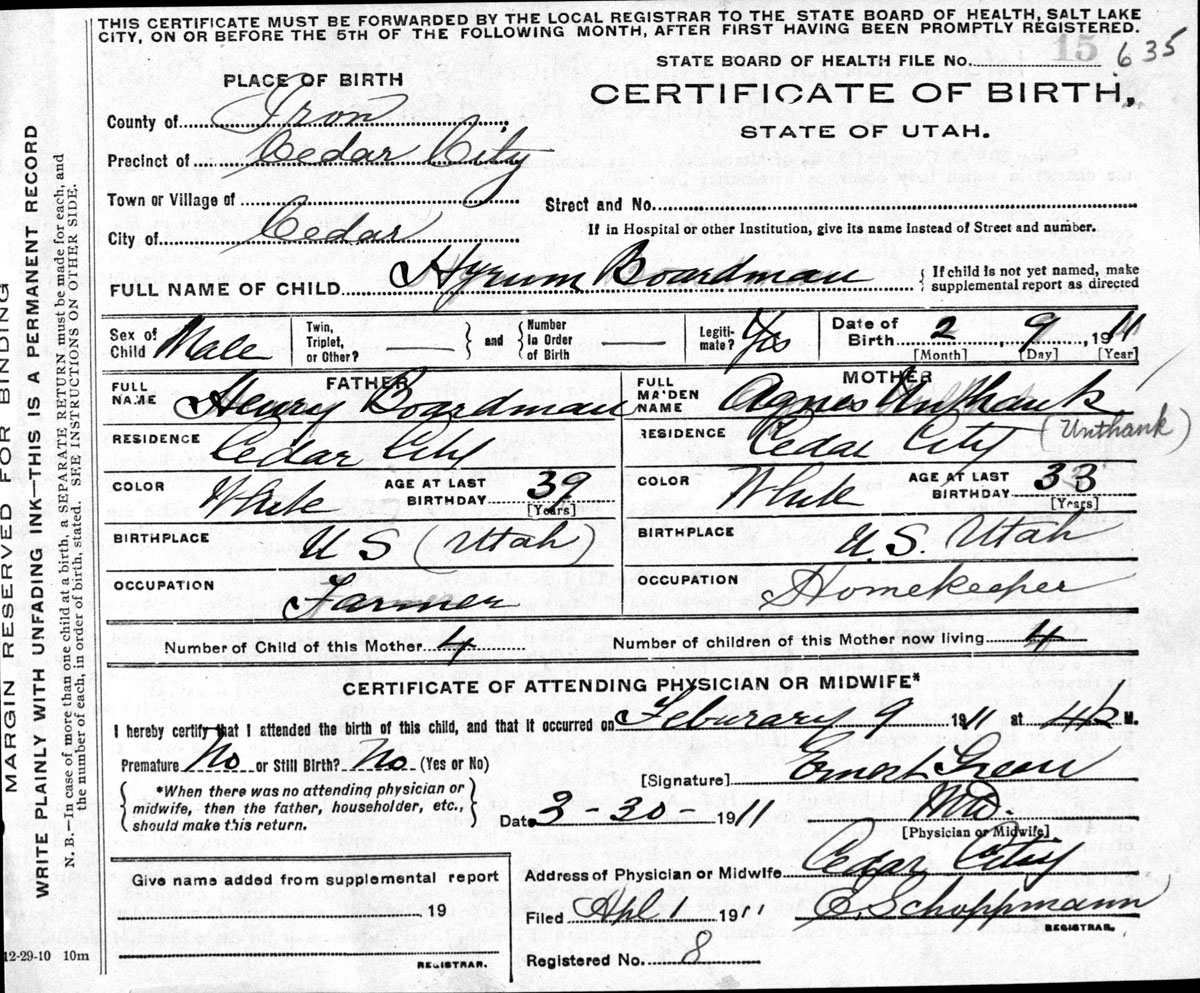 THIS CERTIFICATE MUST BE FORWARDED BY THE LOCAL REGISTRAR TO THE STATE BOARD OF HEALTH, SALT LAKE
CITY, ON OR BEFORE THE 5TH OF THE FOLLOWING MONTH, AFTER FIRST HAVING BEEN PROMPTLY REGISTERED.
MARGIN RESERVED FOR BINDING
WRITE PLAINLY WITH UNFADING INK—THIS IS A PERMANENT RECORD
N. B.—In case of more than one child at a birth, a SEPARATE RETURN must be made for each, and
the number of each, in order of birth, stated. SEE INSTRUCTIONS ON OTHER SIDE.
STATE BOARD OF HEALTH FILE No. 15 635
PLACE OF BIRTH
CERTIFICATE OF BIRTH,
STATE OF UTAH.
County of Iron
Precinct of Cedar City
Town or Village of
Street and No.
City of Cedar
If in Hospital or other Institution, give its name instead of Street and number.
FULL NAME OF CHILD Hyrum Boardman { If child is not yet named, make
supplemental report as directed
Sex of Child Male Twin, Triplet, or Other? — } and { Number in Order of Birth — Legitimate? Yes Date of Birth 2, 9, 1911
[Month] [Day] [Year]
FATHER
FULL NAME Henry Boardman
RESIDENCE Cedar City
COLOR White AGE AT LAST BIRTHDAY 39 [Years]
BIRTHPLACE U S (Utah)
OCCUPATION Farmer
MOTHER
FULL MAIDEN NAME Agnes Unthank
(Unthank)
RESIDENCE Cedar City
COLOR White AGE AT LAST BIRTHDAY 33 [Years]
BIRTHPLACE U. S. Utah
OCCUPATION Homekeeper
Number of Child of this Mother 4 Number of children of this Mother now living 4
CERTIFICATE OF ATTENDING PHYSICIAN OR MIDWIFE*
I hereby certify that I attended the birth of this child, and that it occurred on Feburary 9 1911 at M.
Premature No or Still Birth? No (Yes or No)
[Signature] Ernest Green
*When there was no attending physician or
midwife, then the father, householder, etc.,
should make this return.
Date 3-30- 1911 MD.
[Physician or Midwife]
Address of Physician or Midwife Cedar City
Give name added from supplemental report
19
REGISTRAR.
Filed Apl 1 1911 E. Schoppmann
REGISTRAR.
Registered No. 8
12-29-10 10m